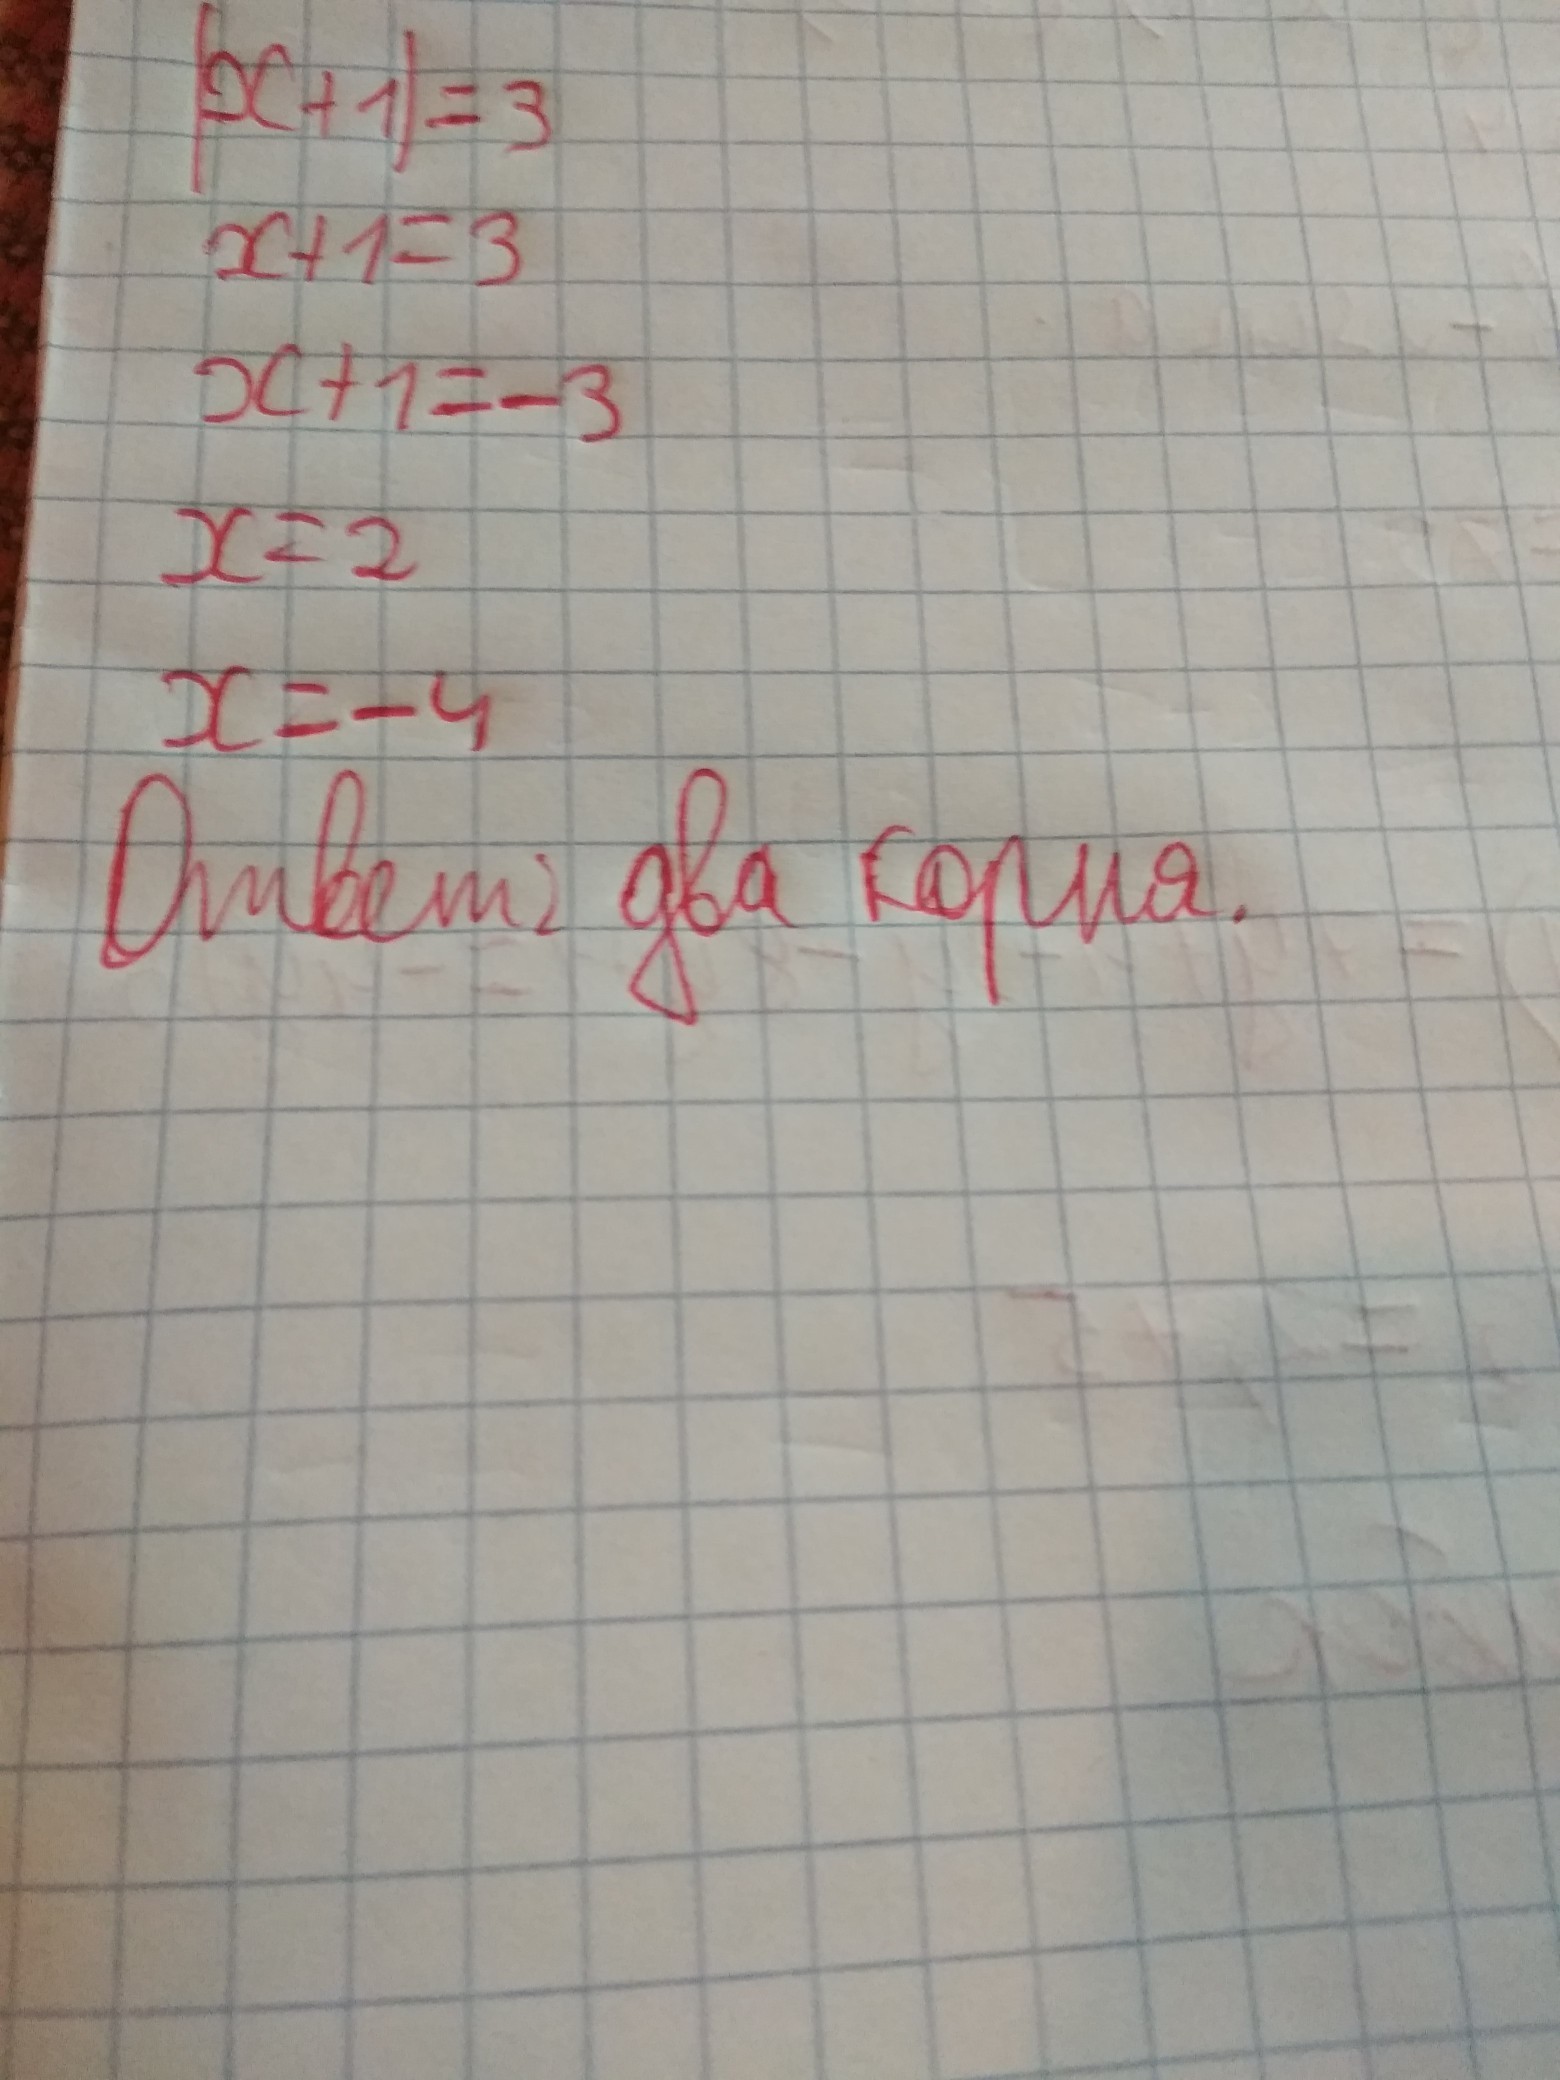 |x+1|=3
x+1=3
x+1=-3
x=2
x=-4
Ответ: два корня.